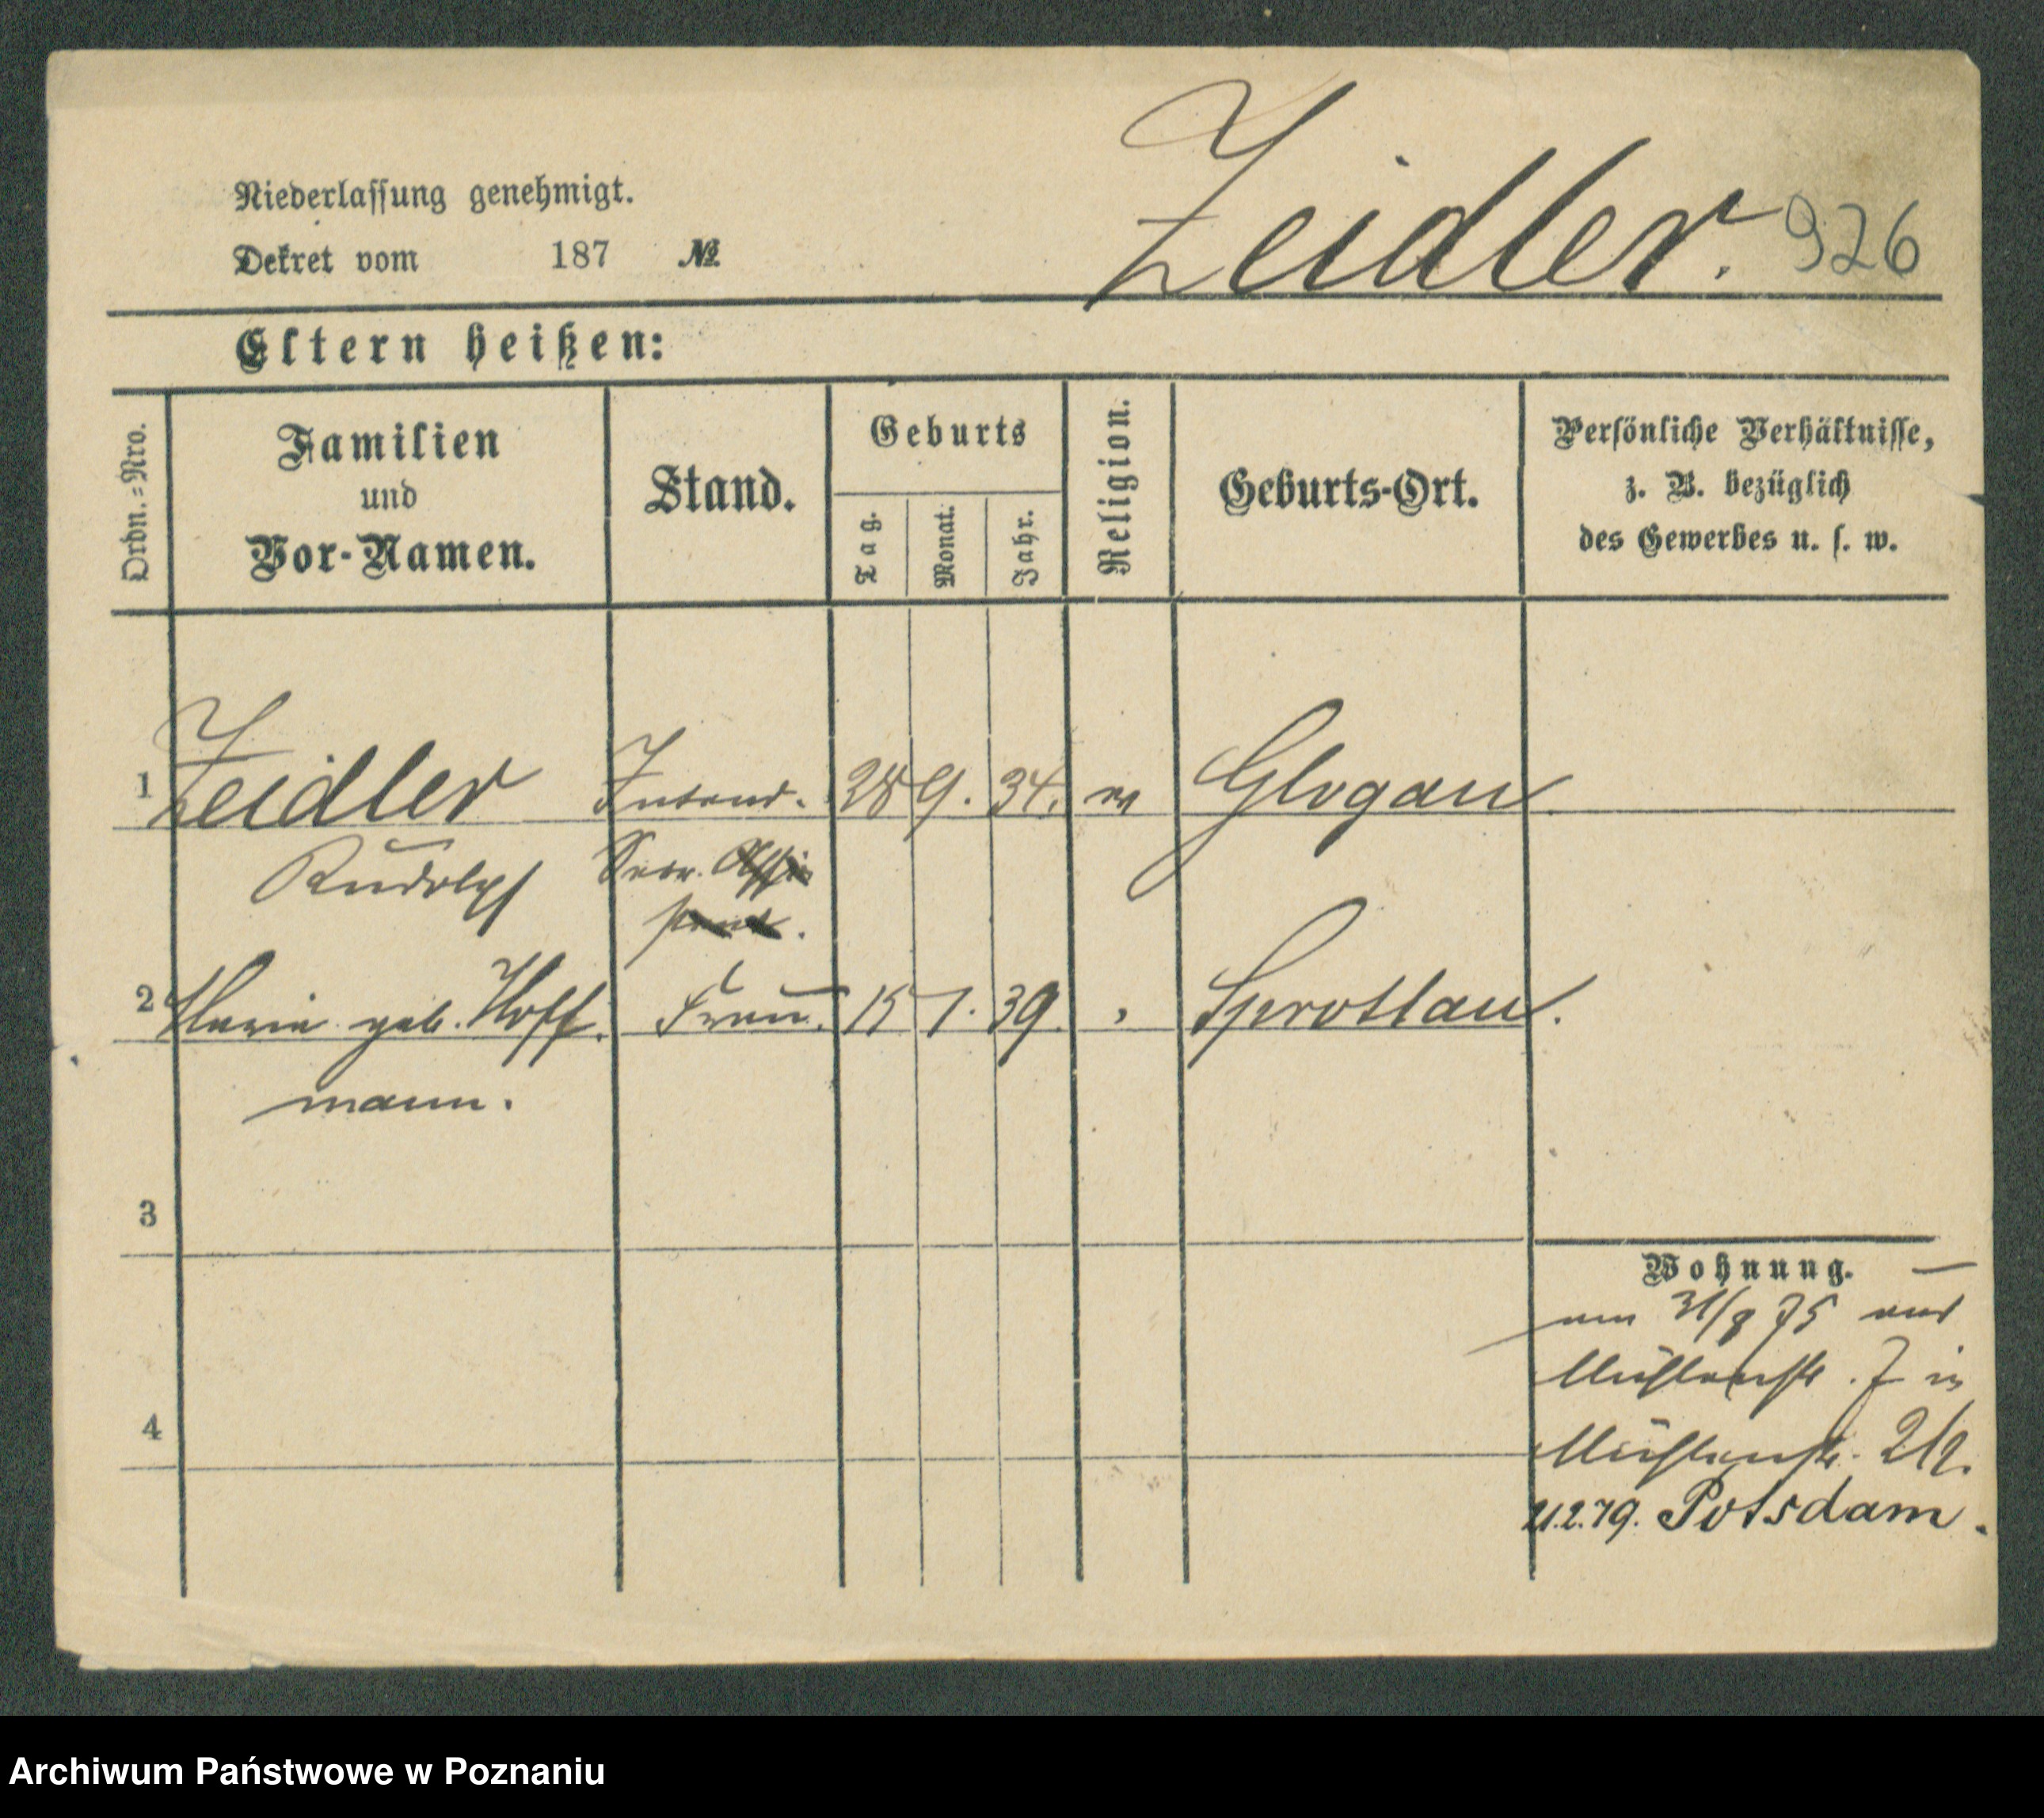 Niederlassung genehmigt.
Dekret vom 187 №
Zeidler. 926
Eltern heißen:
Ordn.-Nro.
Familien
und
Vor-Namen.
Stand.
Geburts
Tag.
Monat.
Jahr.
Religion.
Geburts-Ort.
Persönliche Verhältnisse,
z. B. bezüglich
des Gewerbes u. s. w.
1 Zeidler Intend. 28 9. 34. ev Glogau.
Rudolph Secr. Assi
stent.
2 Maria geb. Hoff Frau. 15 7. 39. " Sprottau.
mann.
3
Wohnung.
75 aus
Mühlenstr. 7 in
4
Mühlenstr.
21.2.79. Potsdam.
Archiwum Państwowe w Poznaniu